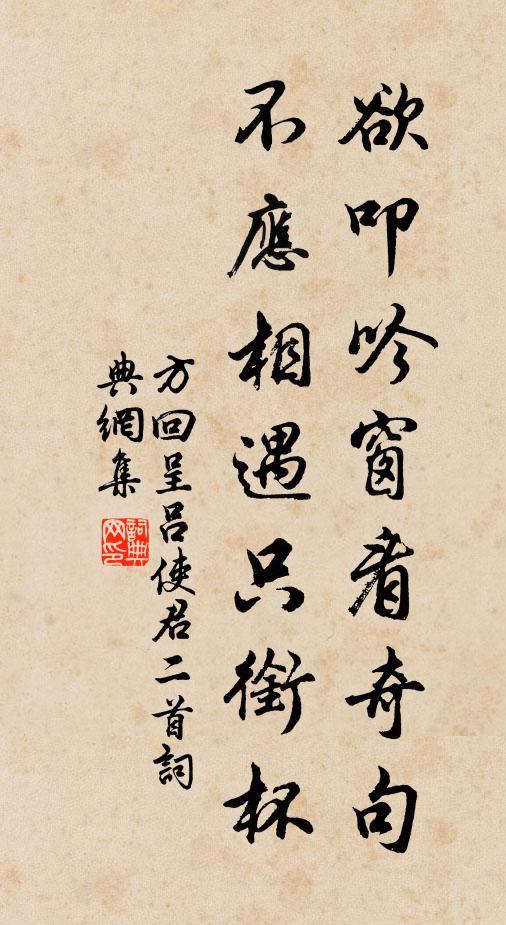 欲叩吟窗看奇句
不應相遇只銜杯
方回呈吕使君二首詞
典網集
詞典
网印